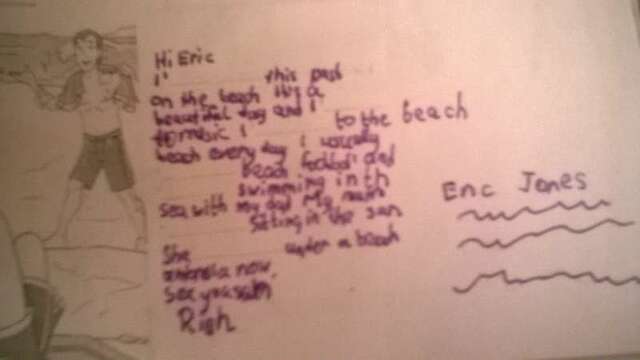 Hi Eric
I' this past
on the beach It's a
beautiful day and I
to the beach
beach every day I usually
beach and
swimming in th
sea with my dad My mum
siting in the sun
She under a beach
umbrella now.
See you
Eric Jones